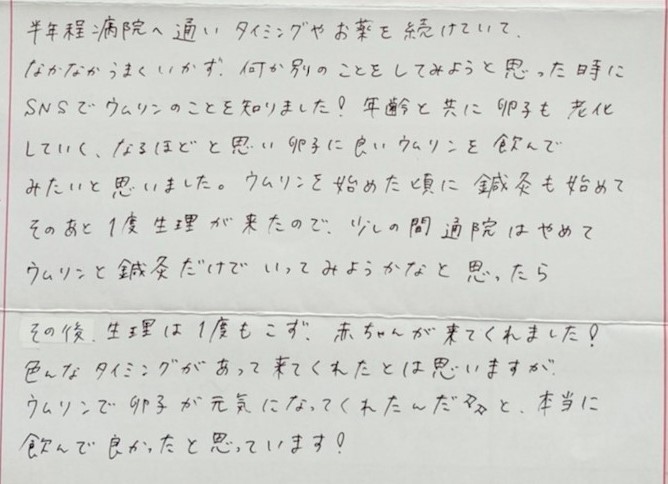 半年程病院へ通いタイミングやお薬を続けていて、
なかなかうまくいかず、何か別のことをしてみようと思った時に
SNSでウムリンのことを知りました！年齢と共に卵子も老化
していく、なるほどと思い卵子に良いウムリンを飲んで
みたいと思いました。ウムリンを始めた頃に鍼灸も始めて
そのあと1度生理が来たので、少しの間通院はやめて
ウムリンと鍼灸だけでいってみようかなと思ったら
その後、生理は1度もこず、赤ちゃんが来てくれました！
色んなタイミングがあって来てくれたとは思いますが、
ウムリンで卵子が元気になってくれたんだと、本当に
飲んで良かったと思っています！